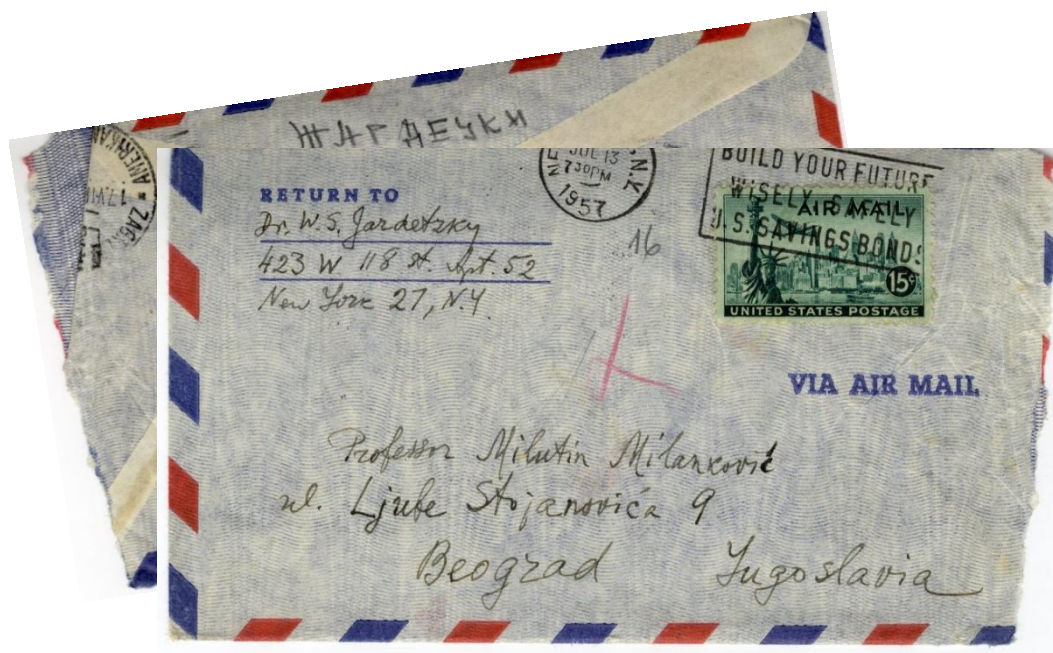 ЖАРДЕЦКИ
AMERIKAN
17.VII
ZAG
RETURN TO
Dr. W. S. Jardetzky
423 W 118 st. Apt. 52
New York 27, N.Y.
NE N.Y.
JUL 13
730PM
1957
BUILD YOUR FUTURE
WISELY SAFELY
U.S. SAVINGS BONDS
16
AIR MAIL
15¢
UNITED STATES POSTAGE
VIA AIR MAIL
Professor Milutin Milanković
ul. Ljube Stojanovića 9
Beograd Jugoslavia